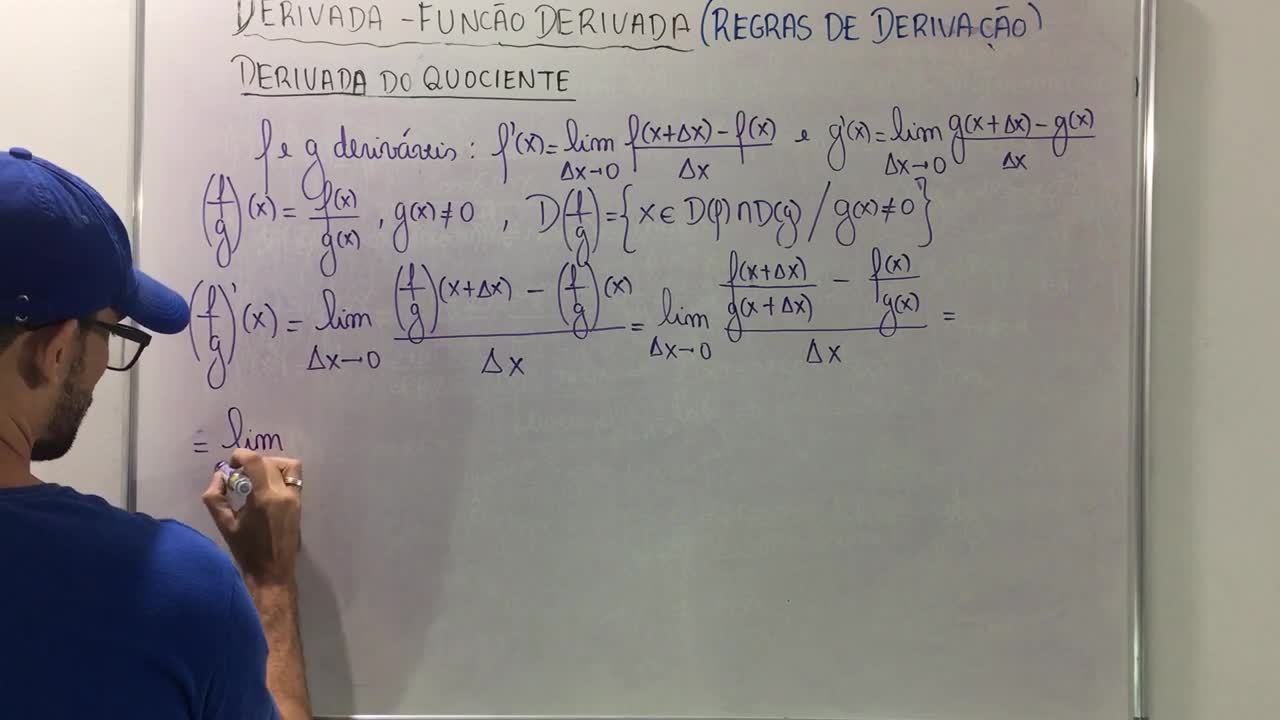 DERIVADA - FUNCÃO DERIVADA (REGRAS DE DERIVAÇÃO)
DERIVADA DO QUOCIENTE
f e g deriváveis : f'(x) = lim Δx→0 f(x+Δx) - f(x) / Δx e g'(x) = lim Δx→0 g(x+Δx) - g(x) / Δx
(f/g)(x) = f(x)/g(x) , g(x) ≠ 0 , D(f/g) = {x ∈ D(f) ∩ D(g) / g(x) ≠ 0}
(f/g)'(x) = lim Δx→0 (f/g)(x+Δx) - (f/g)(x) / Δx = lim Δx→0 f(x+Δx)/g(x+Δx) - f(x)/g(x) / Δx =
= lim